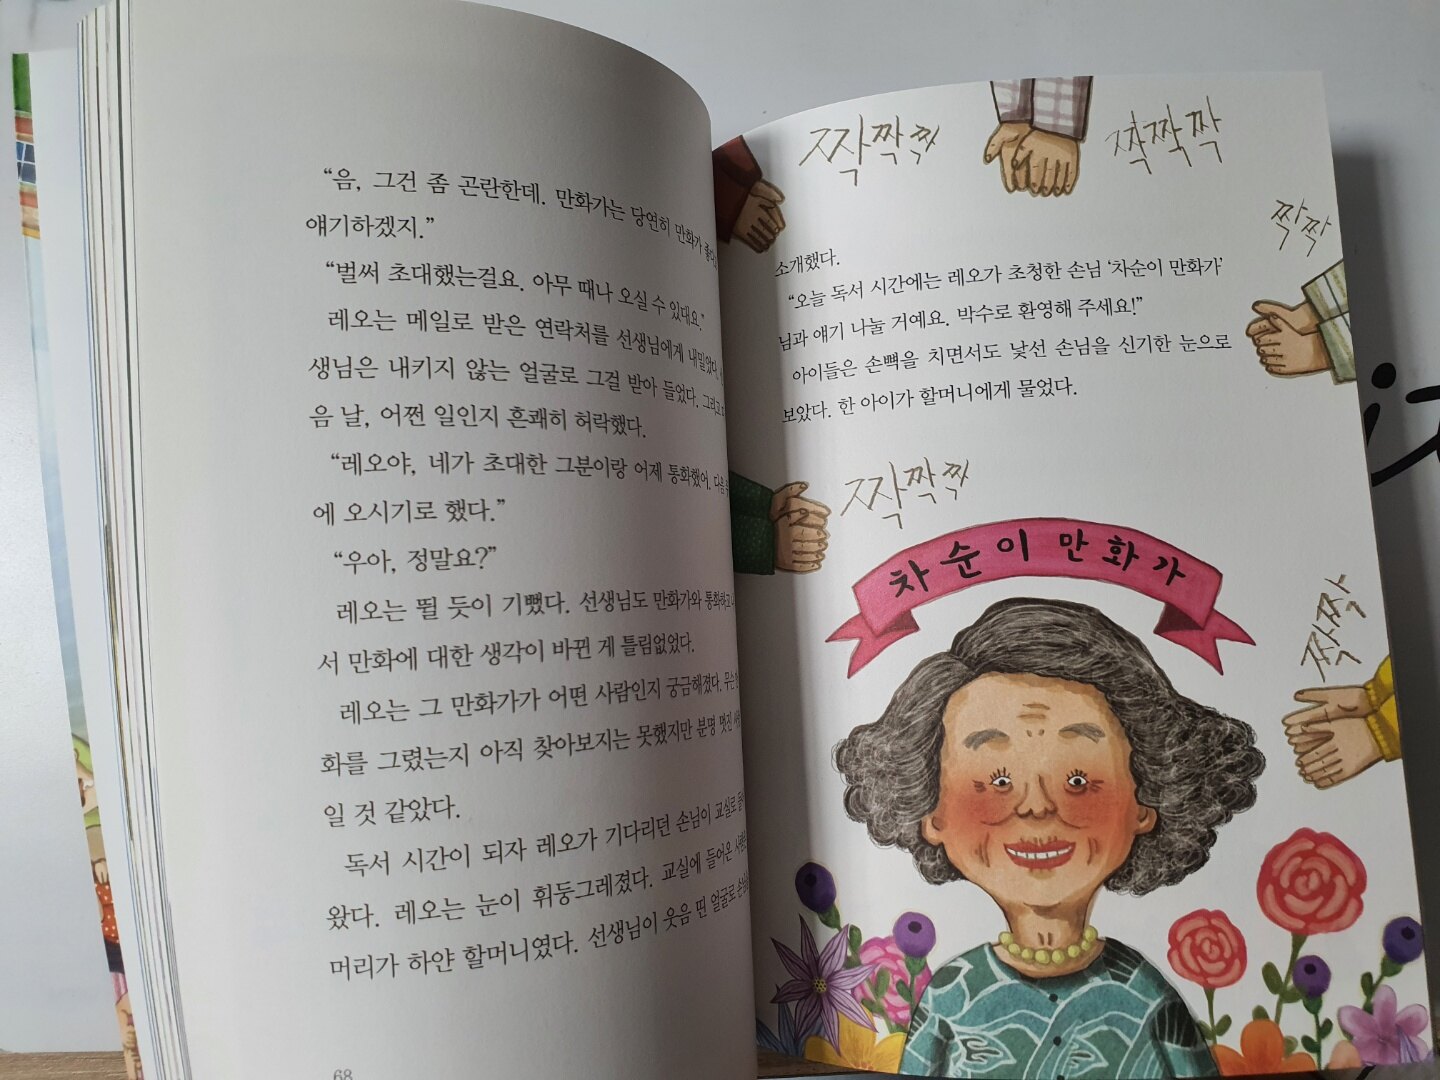 “음, 그건 좀 곤란한데. 만화가는 당연히 만화가
얘기하겠지.”
“벌써 초대했는걸요. 아무 때나 오실 수 있대요.”
레오는 메일로 받은 연락처를 선생님에게 내밀었다.
생님은 내키지 않는 얼굴로 그걸 받아 들었다. 그리고
음 날, 어쩐 일인지 흔쾌히 허락했다.
“레오야, 네가 초대한 그분이랑 어제 통화했어. 다음
에 오시기로 했다.”
“우아, 정말요?”
레오는 뛸 듯이 기뻤다. 선생님도 만화가와 통화하고
서 만화에 대한 생각이 바뀐 게 틀림없었다.
레오는 그 만화가가 어떤 사람인지 궁금해졌다. 무슨
화를 그렸는지 아직 찾아보지는 못했지만 분명 멋진
일 것 같았다.
독서 시간이 되자 레오가 기다리던 손님이 교실로
왔다. 레오는 눈이 휘둥그레졌다. 교실에 들어온
머리가 하얀 할머니였다. 선생님이 웃음 띤 얼굴로
68
짝짝짝
짝짝짝
짝짝
소개했다.
“오늘 독서 시간에는 레오가 초청한 손님 ‘차순이 만화가’
님과 얘기 나눌 거예요. 박수로 환영해 주세요!”
아이들은 손뼉을 치면서도 낯선 손님을 신기한 눈으로
보았다. 한 아이가 할머니에게 물었다.
짝짝짝
차순이 만화가
짝짝짝